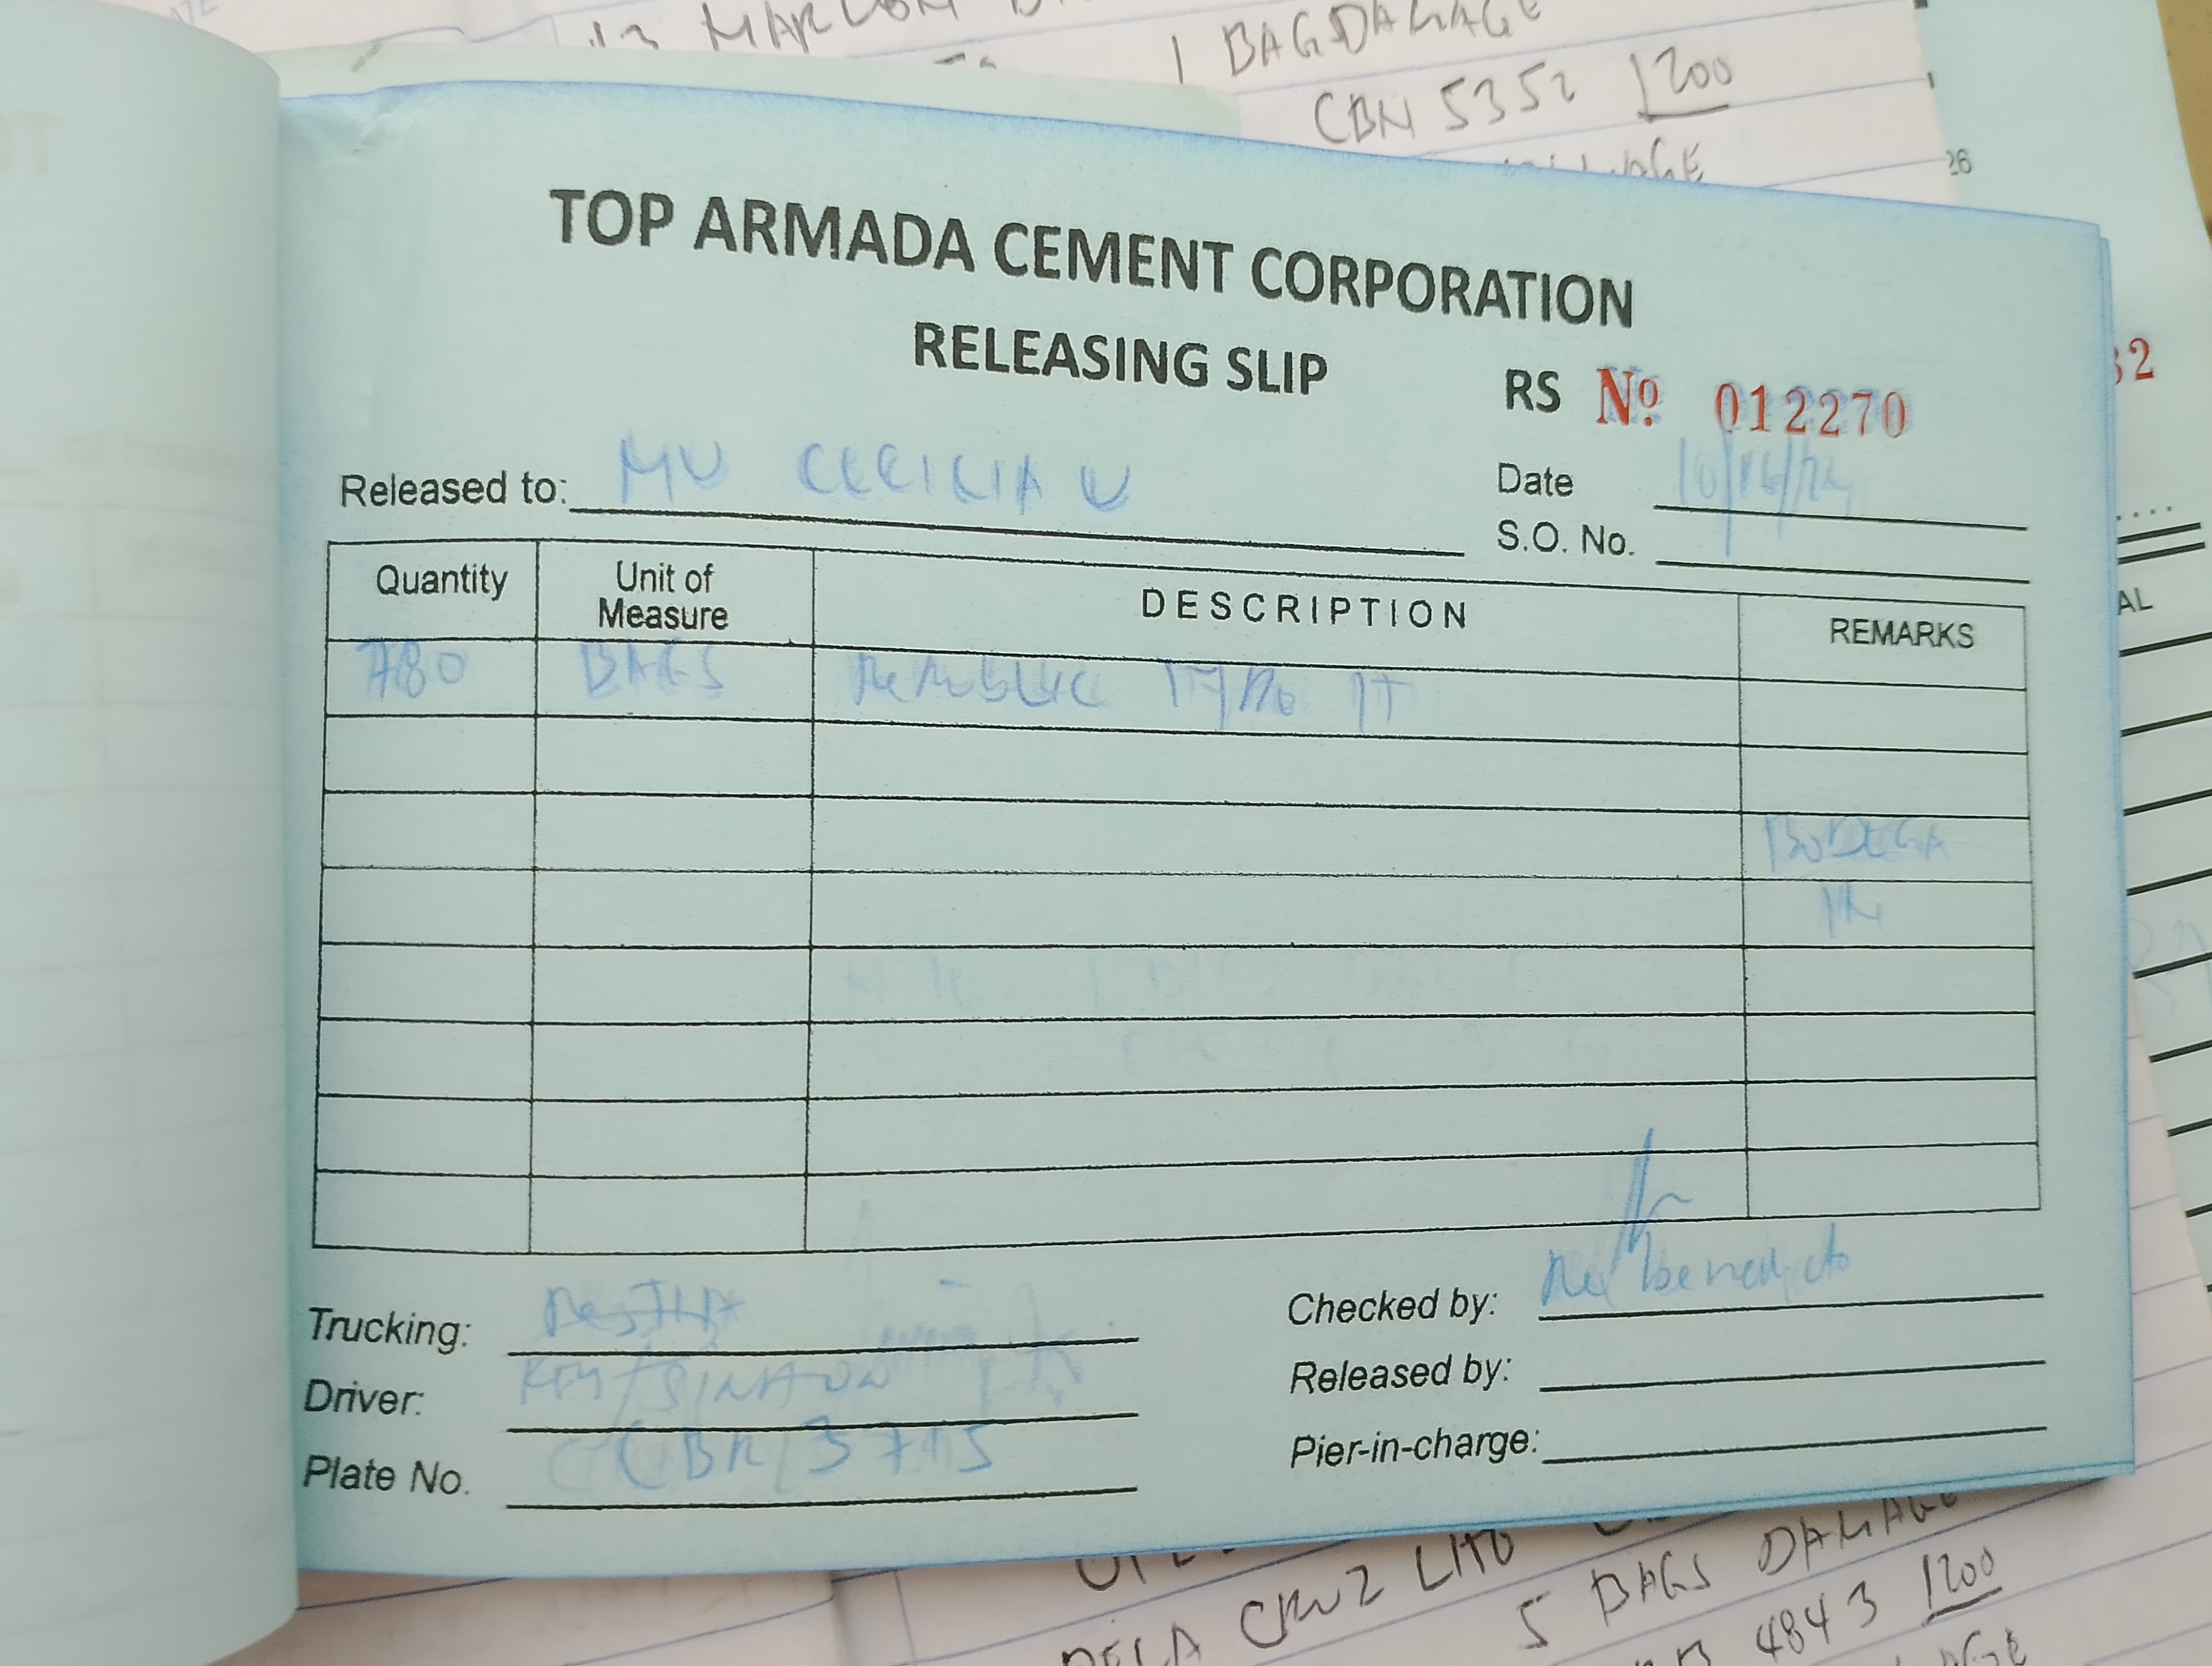 1 BAG DAMAGE
CBN 5352 1200
26
TOP ARMADA CEMENT CORPORATION
RELEASING SLIP
RS Nº 012270
Released to: MV CECILIA V
Date 10/16/24
S.O. No.
Quantity Unit of Measure DESCRIPTION REMARKS
780 BAGS REPUBLIC TYPE 1T
BODEGA
IN
Trucking:
Checked by: benedicto
Driver:
Released by:
Plate No. CBR 3715
Pier-in-charge:
DELA CRUZ LITO
5 BAGS DAMAGE
4843 1200